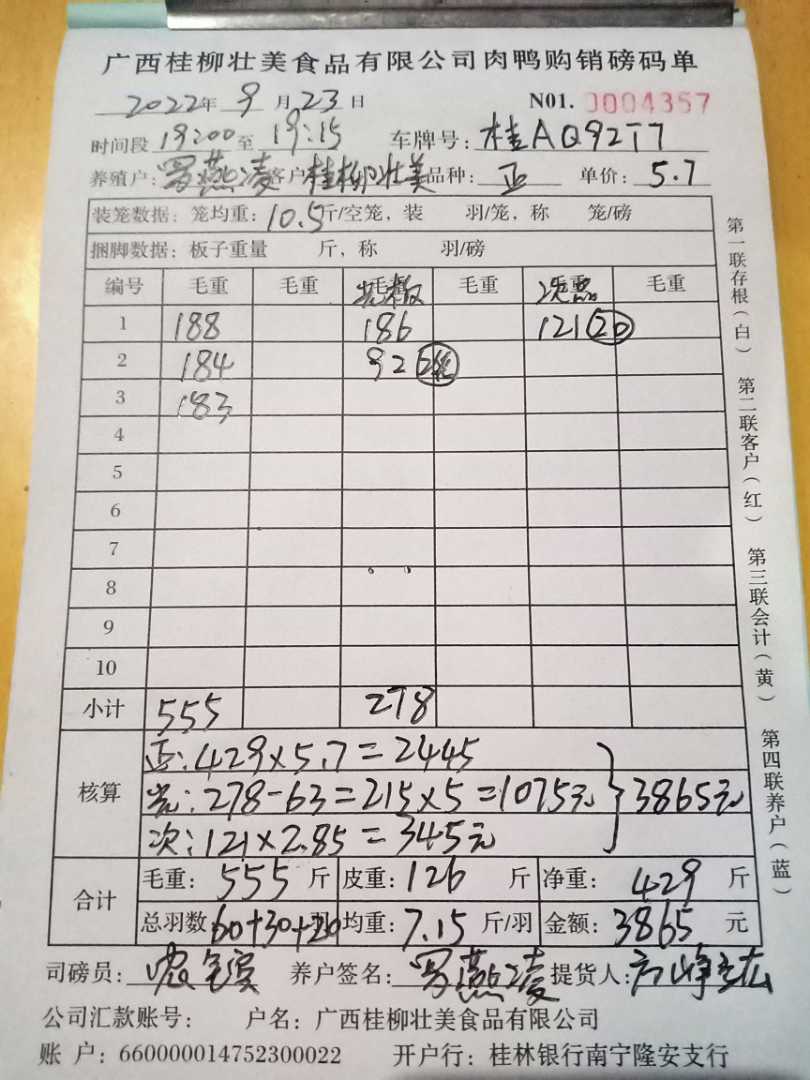 广西桂柳壮美食品有限公司肉鸭购销磅码单
2022年 9 月 23 日 N01. 0004357
时间段 19:00 至 19:15 车牌号: 桂AQ92T7
养殖户: 罗燕凌 客户 桂柳壮美 品种: 正 单价: 5.7
装笼数据: 笼均重: 10.5 斤/空笼, 装 羽/笼, 称 笼/磅
捆脚数据: 板子重量 斤, 称 羽/磅
编号 毛重 毛重 毛重 毛重
1 188 186 121 20
2 184 92
3 183
4
5
6
7
8
9
10
小计 555 278
核算
正: 429×5.7=2445
光: 278-63=215×5=1075元 3865元
次: 121×2.85=345元
合计
毛重: 555 斤 皮重: 126 斤 净重: 429 斤
总羽数 60+30+20 均重: 7.15 斤/羽 金额: 3865 元
司磅员: 养户签名: 罗燕凌 提货人:
公司汇款账号: 户名: 广西桂柳壮美食品有限公司
账 户: 660000014752300022 开户行: 桂林银行南宁隆安支行
第一联存根(白) 第二联客户(红) 第三联会计(黄) 第四联养户(蓝)